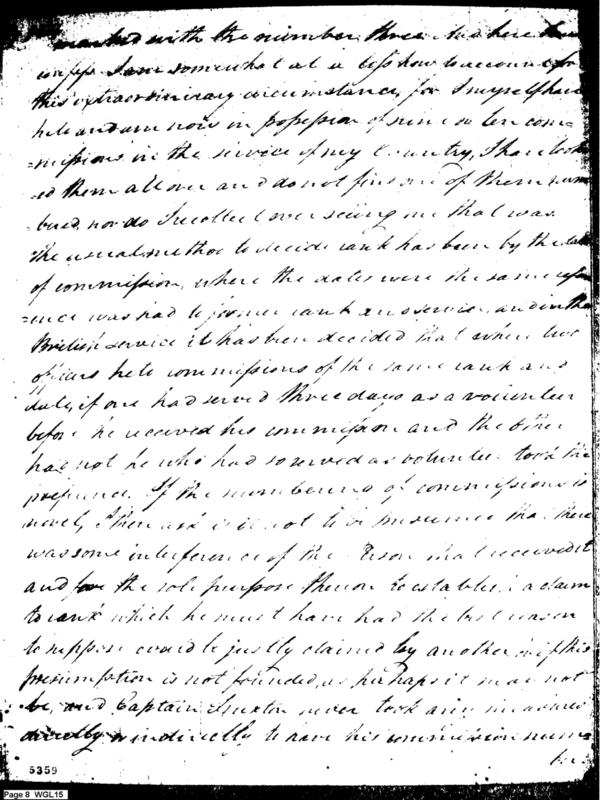 marked with the number three. And here I must
confess I am somewhat at a loss how to account for
this extraordinary circumstance, for I myself have
held and am now in possession of nine or ten com=
=missions in the service of my Country, I have look
ed them all over and do not find one of them num
bered, nor do I recollect ever seeing one that was.
the usual method to decide rank has been by the date
of commission, where the dates were the same refer
=ence was had to former rank and service, and in the
British service it has been decided that when two
officers held commissions of the same rank and
date, if one had served three days as a volunteer
before he received his commission and the other
had not he who had so served as volunteer took the
preference. If the numbering of commissions is
novel, I then ask is it not to be presumed that there
was some interference of the Person that received it
and for the sole purpose thereon to establish a claim
to rank which he must have had the best reason
to suppose could be justly claimed by another or if this
presumption is not founded, as perhaps it may not
be, and Captain Truxtun never took any measures
directly or indirectly to have his commission num=
5359
Page 8 WGL15